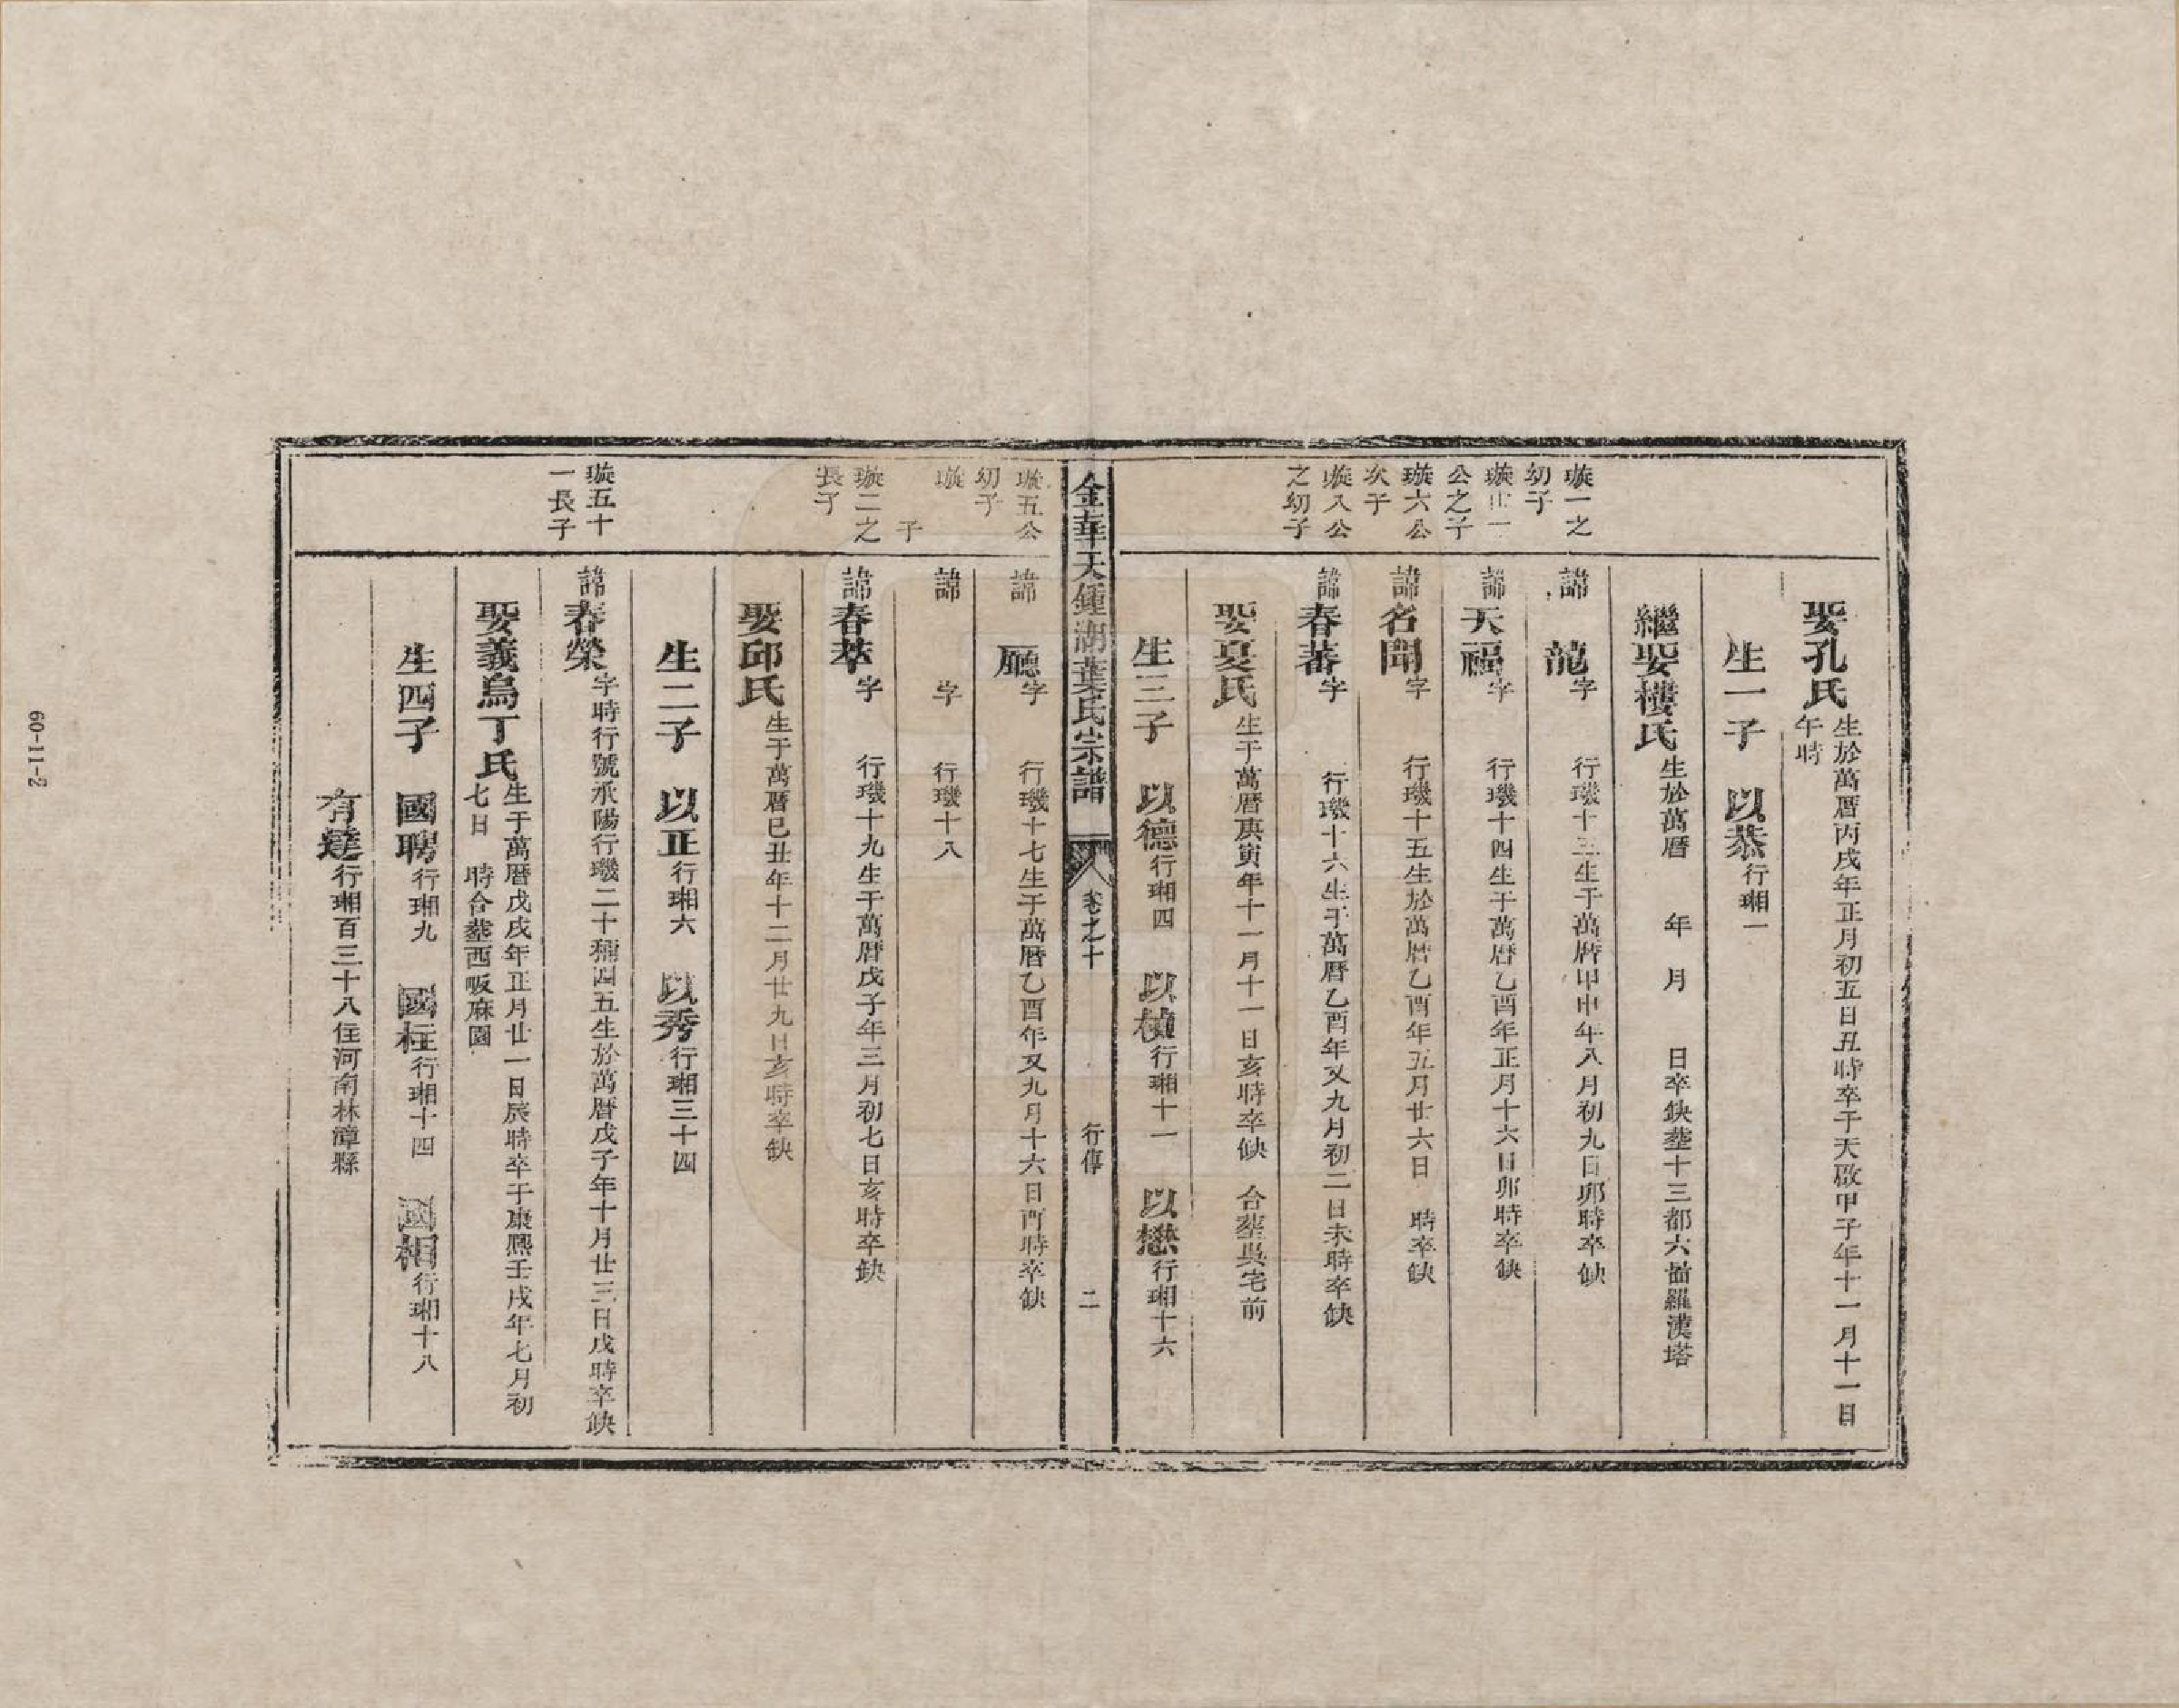 娶孔氏生於萬曆丙戌年正月初五日丑時卒于天啟甲子年十一月十一日
午時
生一子　以恭行瑚一
繼娶樓氏生於萬曆　年　月　日卒缺塟十三都六啚羅漢塔
璇一之
幼子
諱　龍字　行璣十三生于萬曆甲申年八月初九日卯時卒缺
公之子
諱天福字　行璣十四生于萬曆乙酉年正月十六日卯時卒缺
璇六公
次子
諱名聞字　行璣十五生於萬曆乙酉年五月廿六日　時卒缺
璇八公
之幼子
諱春蕃字　行璣十六生于萬曆乙酉年又九月初二日未時卒缺
娶夏氏生于萬曆庚寅年十一月十一日亥時卒缺　合塟吳宅前
生三子　以德行瑚四　以楨行瑚十一　以懋行瑚十六
金華天鍾湖葉氏宗譜　卷之十　行傳　二
璇五公
幼子
諱　廳字　行璣十七生于萬曆乙酉年又九月十六日酉時卒缺
璇
子
諱　字　行璣十八
璇二之
長子
諱春萃字　行璣十九生于萬曆戊子年三月初七日亥時卒缺
娶邱氏生于萬曆巳丑年十二月廿九日亥時卒缺
生二子　以正行瑚六　以秀行瑚三十四
璇五十
一長子
諱春榮字時行號承陽行璣二十稱四五生於萬曆戊子年十月廿三日戌時卒缺
娶義烏丁氏生于萬曆戊戌年正月廿一日辰時卒于康熙壬戌年七月初
七日　時合塟西畈麻園
生四子　國聘行瑚九　國柱行瑚十四　國相行瑚十八
有達行瑚百三十八住河南林漳縣
60-11-2